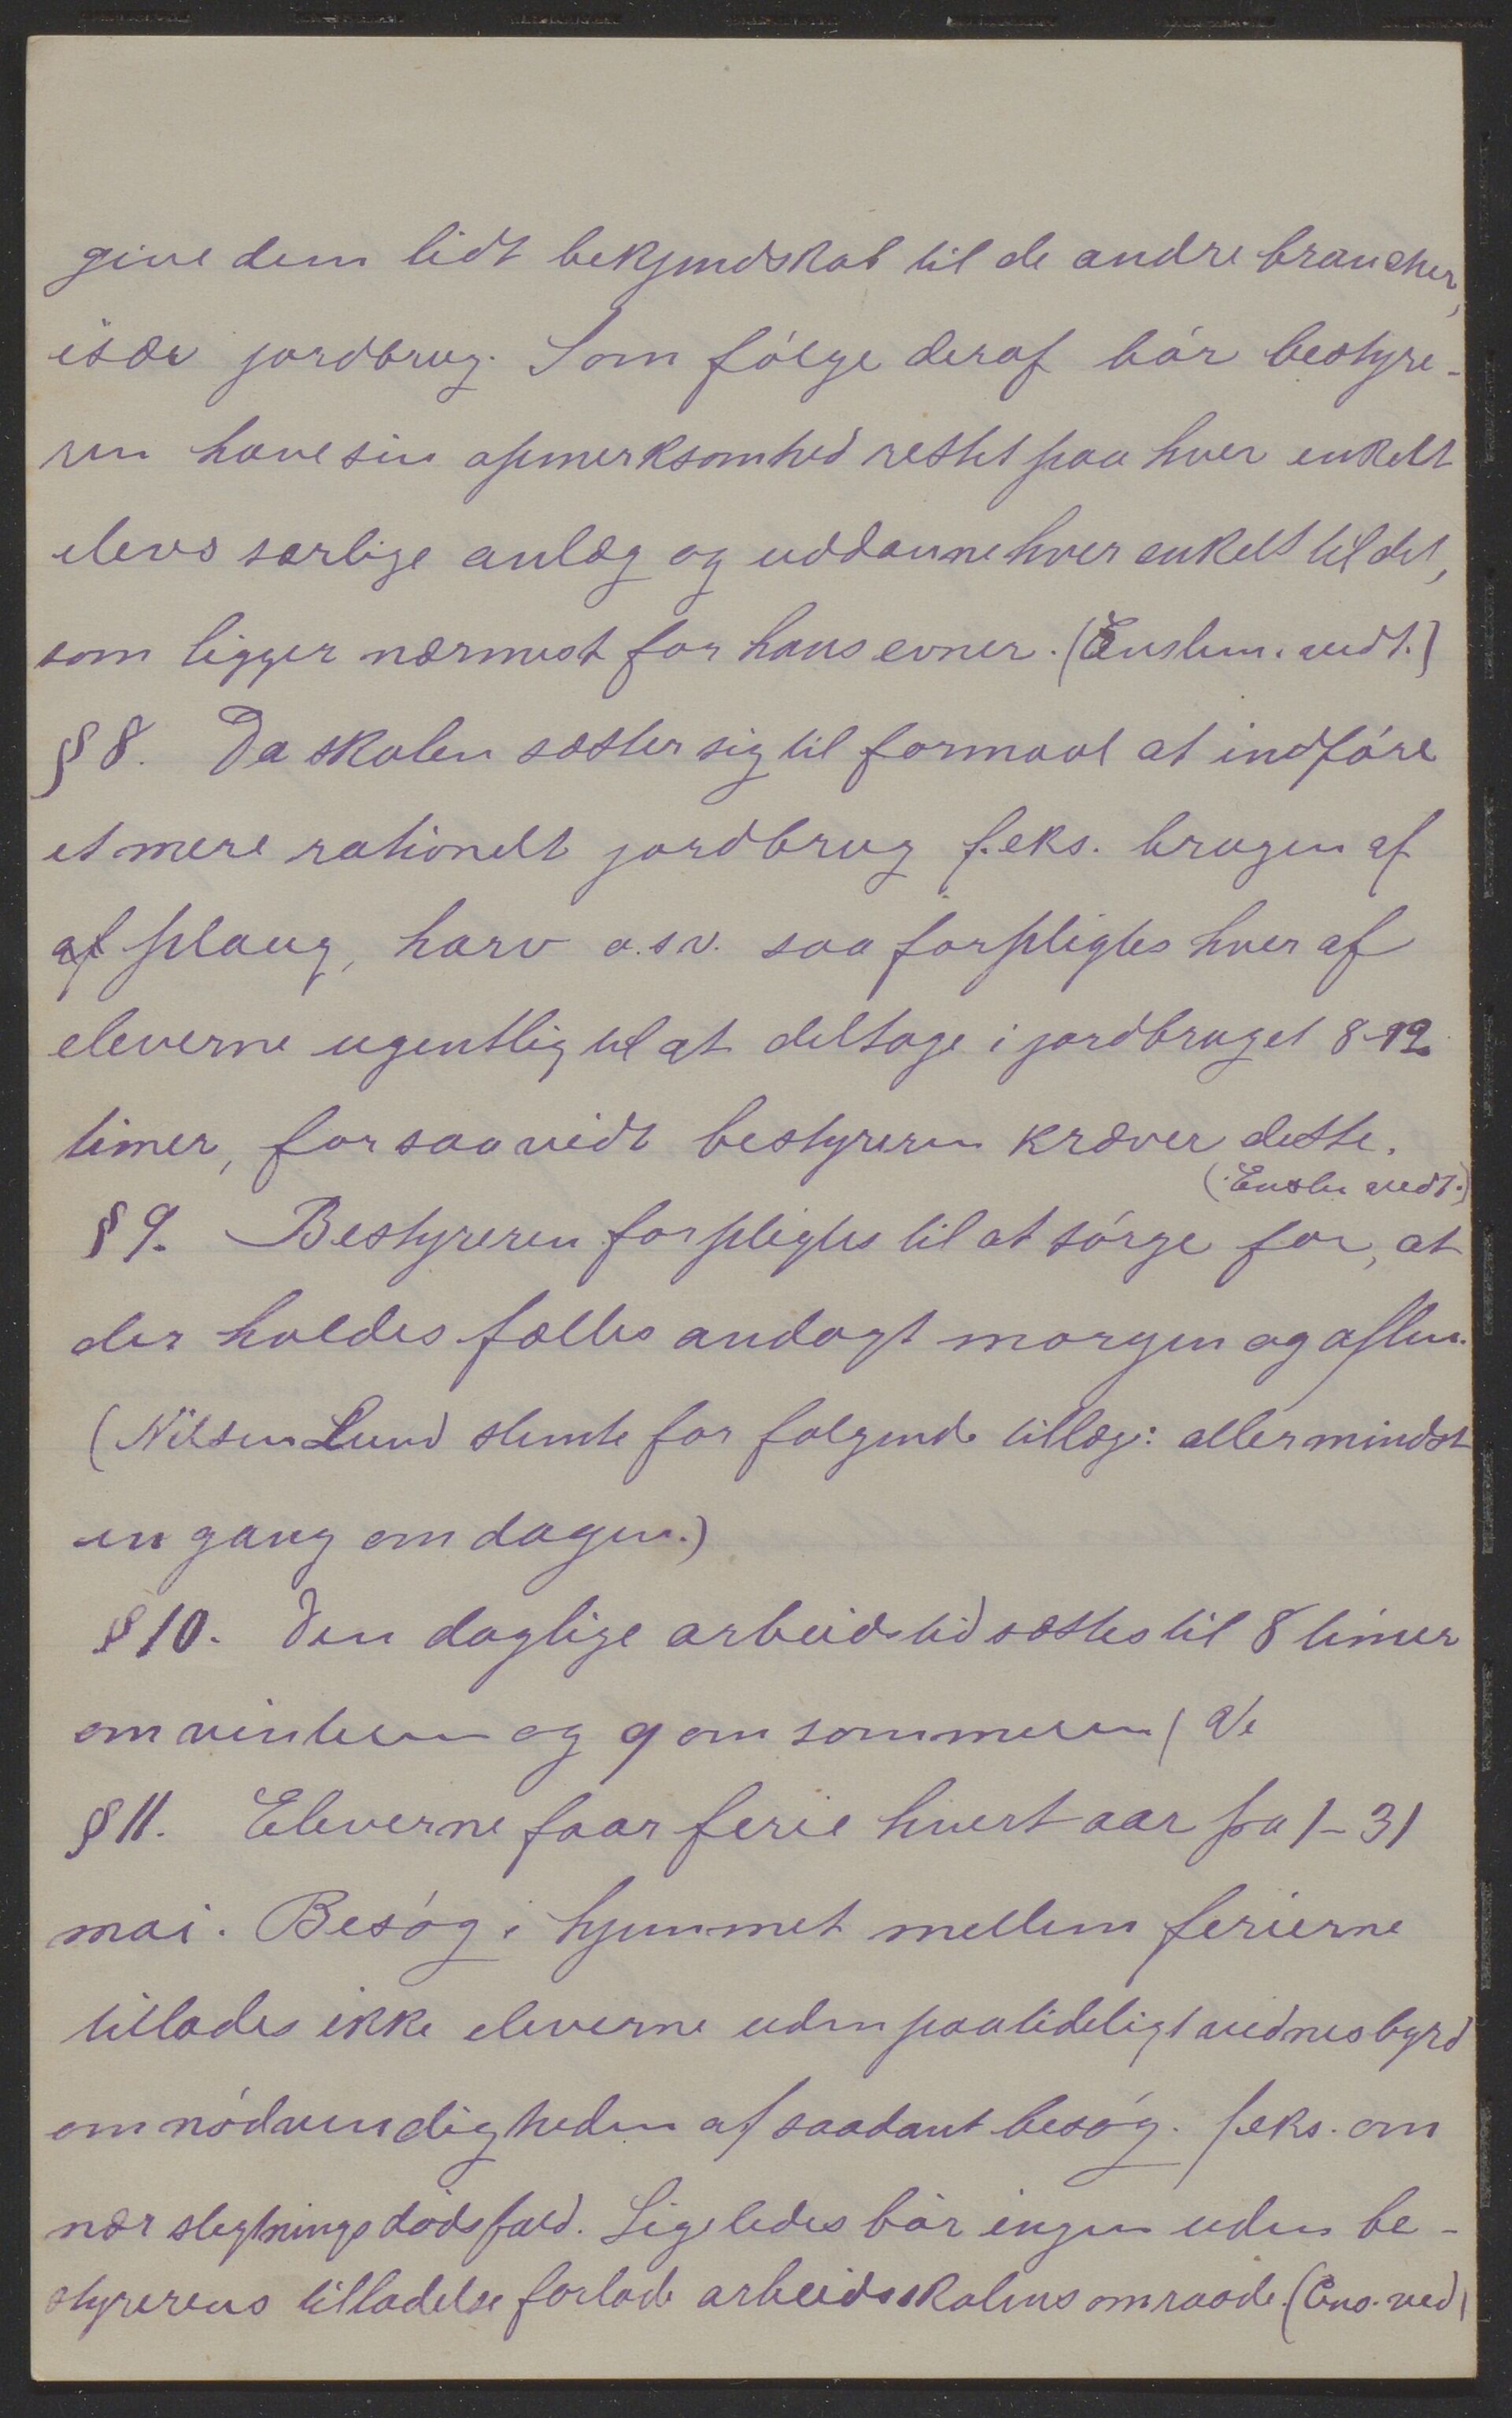 give dem lidt bekjendskab til de andre brancher,
især jordbrug. Som følge deraf bør bestyre-
ren have sin opmerksomhed rettet paa hver enkelt
elevs særlige anlæg og uddanne hver enkelt til det,
som ligger nærmest for hans evner. (Enstem. vedt.)
§ 8. Da skolen sætter sig til formaal at indføre
et mere rationelt jordbrug f.eks. brugen af
af plaug, harv o.s.v. saa forpligtes hver af
eleverne ugentlig til at deltage i jordbruget 8-12
timer, forsaavidt bestyreren kræver dette.
(Enste vedt.)
§ 9. Bestyreren forpligtes til at sørge for, at
der holdes fælles andagt morgen og aften.
(Nilsen Lund stemte for følgende tillæg: allermindst
en gang om dagen.)
§ 10. Den daglige arbeidstid sættes til 8 timer
om vinteren og 9 om sommeren (
§ 11. Eleverne faar ferie hvert aar fra 1-31
mai. Besøg i hjemmet mellem ferierne
tillades ikke eleverne uden paalideligt vidnesbyrd
om nødvendigheden af saadant besøg. f.eks. om
nær slegtnings dødsfald. Ligeledes bør ingen uden be-
styrerens tilladelse forlade arbeidsskolens omraade. (Ens. ved)